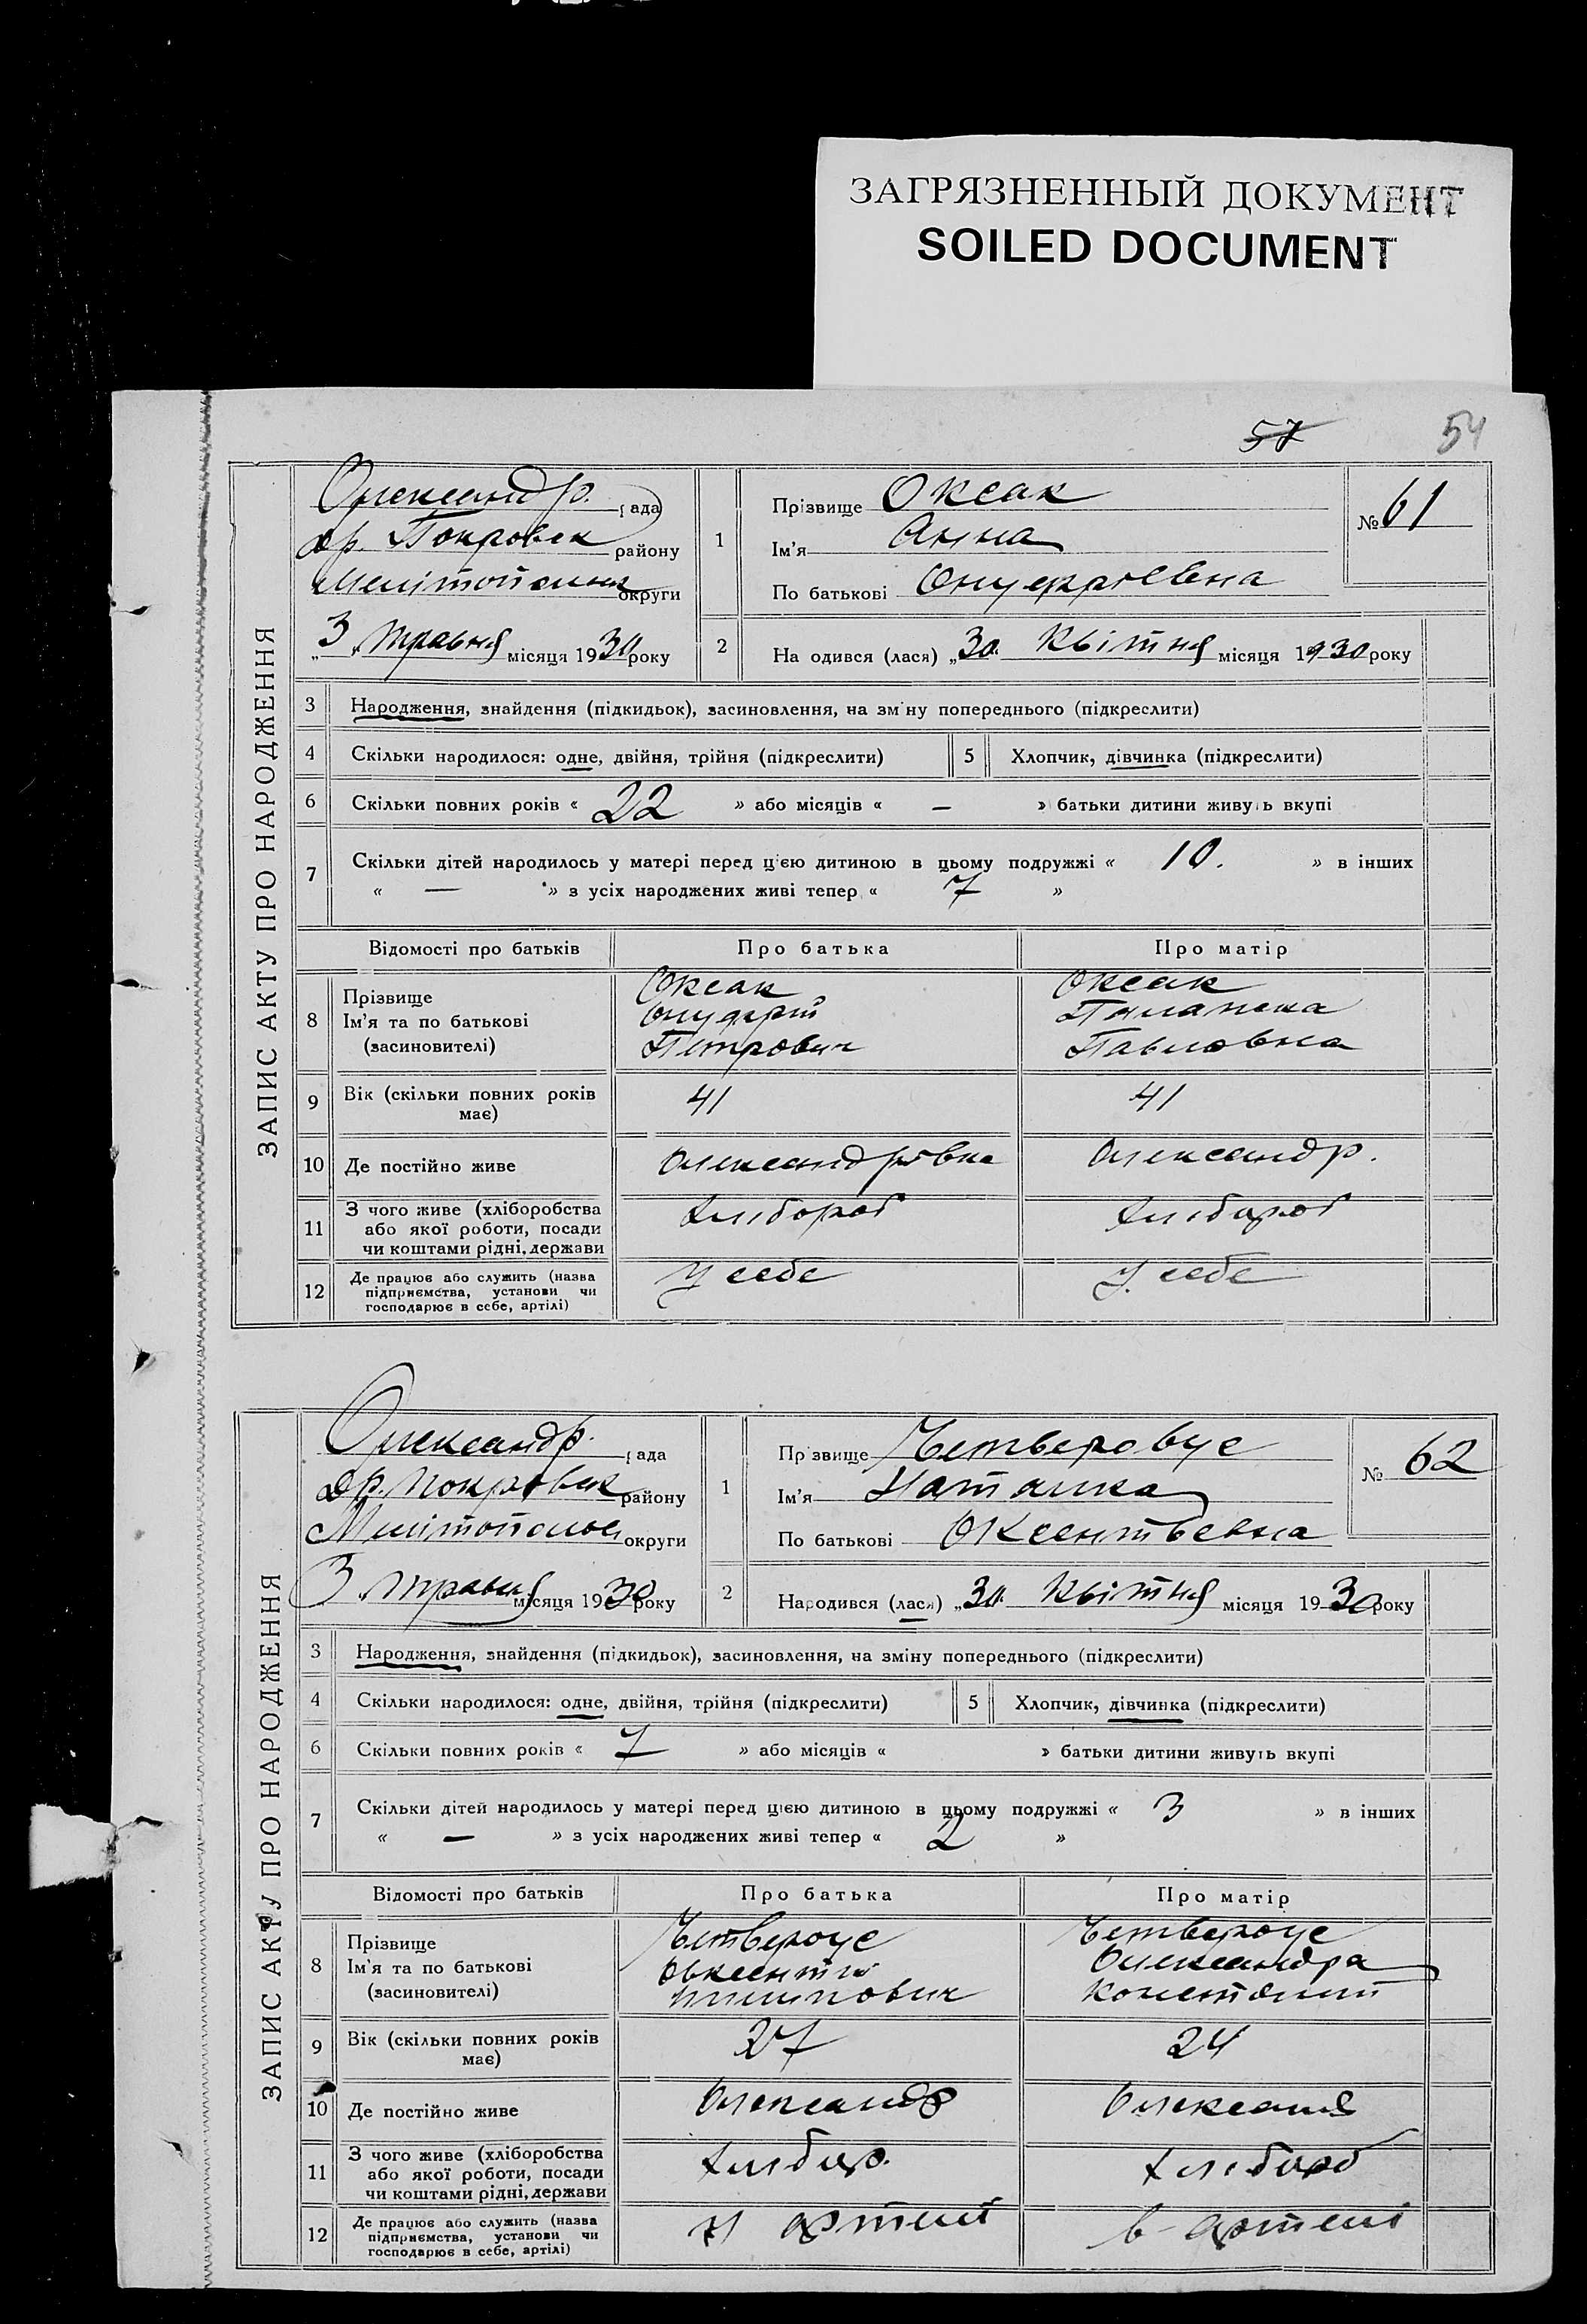 ЗАГРЯЗНЕННЫЙ ДОКУМЕНТ
SOILED DOCUMENT
57 54
ЗАПИС АКТУ ПРО НАРОДЖЕННЯ
Олександр. рада
др. Покровськ району
Мелітопольськ округи
„3„ травня місяця 1930 року
1
Прізвище Оксак
Ім'я Анна
По батькові Онуфріївна
№ 61
2 На одився (лася) „30„ Квітня місяця 1930 року
3 Народження, знайдення (підкидьок), засиновлення, на зміну попереднього (підкреслити)
4 Скільки народилося: одне, двійня, трійня (підкреслити) 5 Хлопчик, дівчинка (підкреслити)
6 Скільки повних років « 22 » або місяців « — » батьки дитини живуть вкупі
7 Скільки дітей народилось у матері перед цією дитиною в цьому подружжі « 10. » в інших
« — » з усіх народжених живі тепер « 7 »
Відомості про батьків Про батька Про матір
8 Прізвище
Ім'я та по батькові
(засновителі)
Оксак
Онуфрій
Петрович
Оксак
Палажка
Павловна
9 Вік (скільки повних років має) 41 41
10 Де постійно живе Олександрівка Олександр.
11 З чого живе (хліборобства
або якої роботи, посади
чи коштами рідні, держави
Хлібороб Хлібороб
12 Де працює або служить (назва
підприємства, установи чи
господарює в себе, артілі)
У себе У себе
ЗАПИС АКТУ ПРО НАРОДЖЕННЯ
Олександр. рада
др. Покровськ району
Мелітопольськ округи
3 травня місяця 1930 року
1
Прізвище Четверовус
Ім'я Наталка
По батькові Оксентьевна
№ 62
2 Народився (лася) „30. Квітня місяця 1930 року
3 Народження, знайдення (підкидьок), засиновлення, на зміну попереднього (підкреслити)
4 Скільки народилося: одне, двійня, трійня (підкреслити) 5 Хлопчик, дівчинка (підкреслити)
6 Скільки повних років « 7 » або місяців « » батьки дитини живуть вкупі
7 Скільки дітей народилось у матері перед цією дитиною в цьому подружжі « 3 » в інших
« — » з усіх народжених живі тепер « 2 »
Відомості про батьків Про батька Про матір
8 Прізвище
Ім'я та по батькові
(засиновителі)
Четвероус
Овксентій
Четвероус
Олександра
Констант
9 Вік (скільки повних років має) 27 24
10 Де постійно живе Олександр
11 З чого живе (хліборобства
або якої роботи, посади
чи коштами рідні, держави
Хлібор. Хлібороб
12 Де працює або служить (назва
підприємства, установи чи
господарює в себе, артілі)
У артелі в артелі